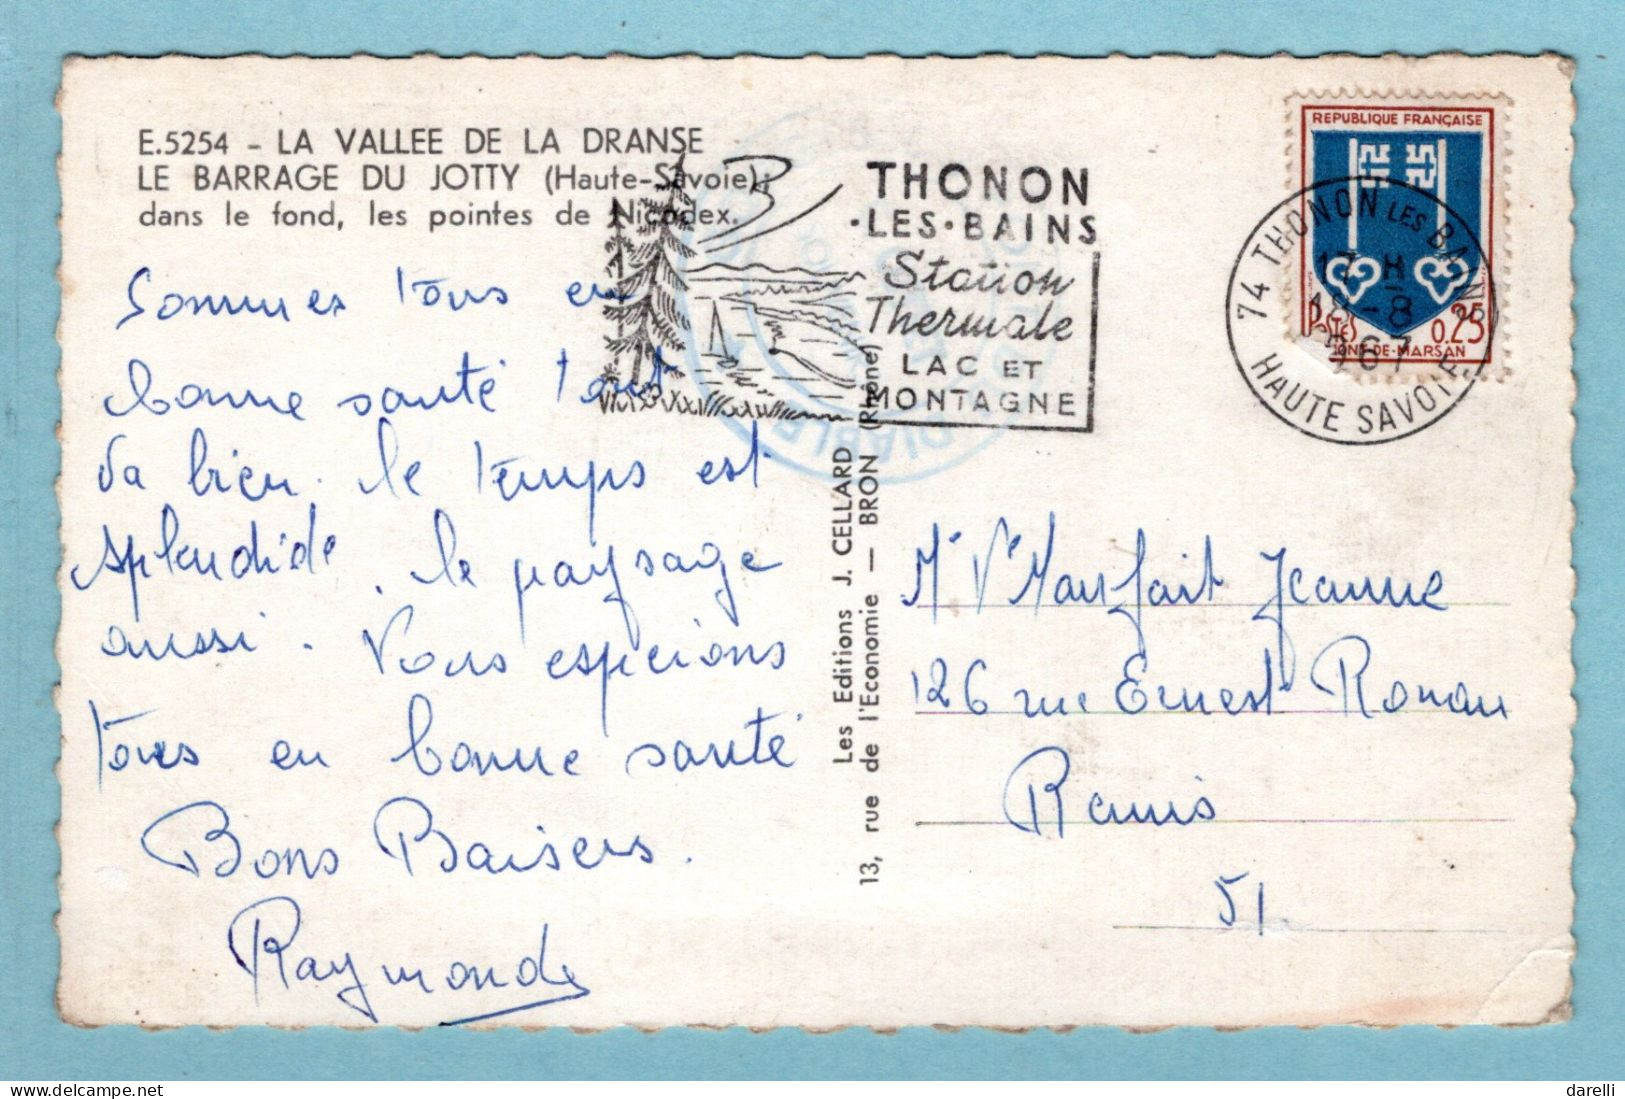 E.5254 - LA VALLEE DE LA DRANSE
LE BARRAGE DU JOTTY (Haute-Savoie);
dans le fond, les pointes de Nicodex.
Sommes tous en
bonne santé tout
va bien. le temps est
splendide. le paysage
aussi. Vous espérons
tous en bonne santé
Bons Baisers.
Raymonde
THONON
·LES·BAINS
Station
Thermale
LAC ET
MONTAGNE
Les Editions J. CELLARD
13, rue de l'Economie — BRON (Rhône)
REPUBLIQUE FRANÇAISE
POSTES 0,25
MONT-DE-MARSAN
74 THONON LES BAINS
18-8
1967
HAUTE SAVOIE
Jeanne
126 rue Ernest Renan
Reims
51
darelli